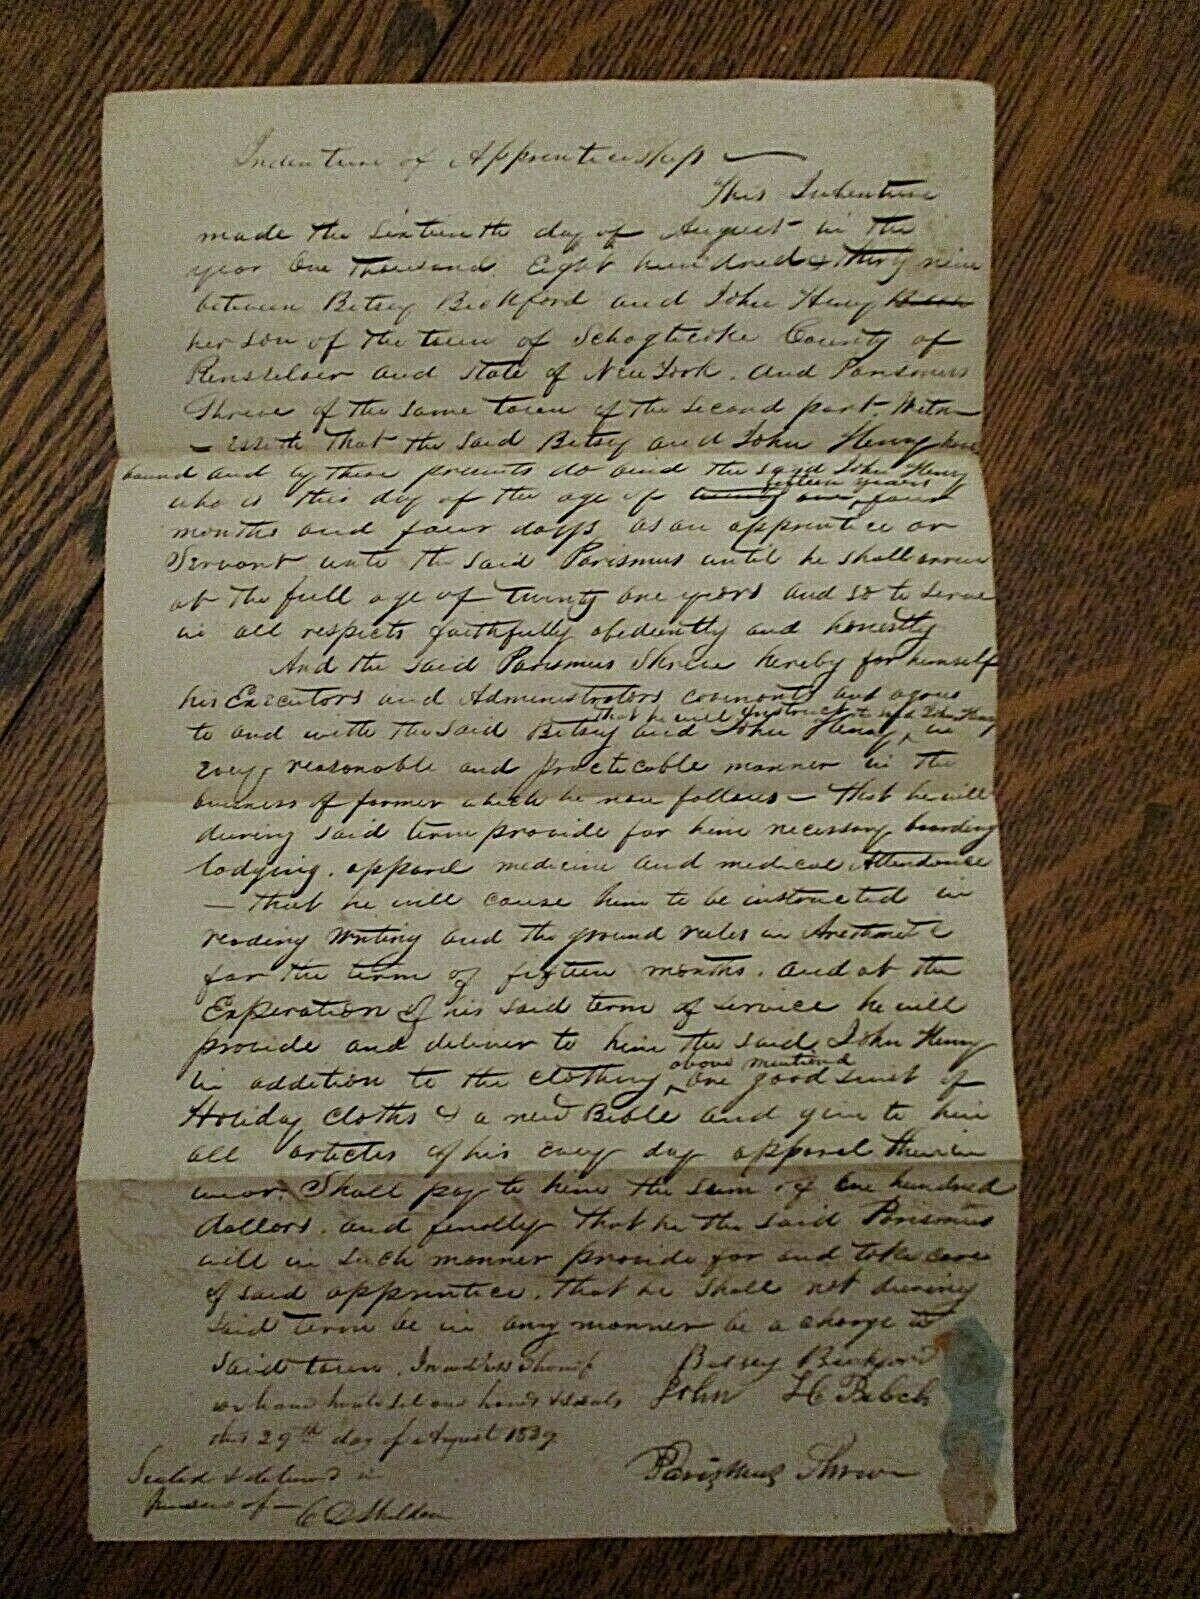 Indenture of Apprenticeship
This Indenture
made the Sixteenth day of August in the
year One thousand Eight hundred & thirty nine
between Betsey Bickford and John Henry
her son of the town of Schagticoke County of
Rensselaer and State of New York. And Parismus
of the same town of the second part. Witn
esseth that the said Betsey and John Henry
bound and by these presents do bind the said John Henry
fifteen years
who is this day of the age of twenty one four
months and four days as an apprentice or
Servant unto the said Parismus until he shall arrive
at the full age of twenty one years and so to serve
in all respects faithfully obediently and honestly
And the said Parismus hereby for himself
his Executors and Administrators covenants and agrees
that he will instruct the said John Henry
to and with the said Betsey and John Henry, in
Every reasonable and practicable manner in the
business of farmer which he now follows — that he will
during said term provide for him necessary boarding
lodging. apparel medicine and medical Attendance
— that he will cause him to be instructed in
reading writing and the ground rules in
for the term of months. and at the
Experation of his said term of service he will
provide and deliver to him the said John Henry
above mentiond
in addition to the clothing one good suit of
Holiday cloths & a new Bible and give to him
all articles of his every day apparel then in
wear. Shall pay to him the sum of One hundred
dollars. and finally that he the said Parismus
will in such manner provide for and take care
of said apprentice. that he shall not during
said term be in any manner be a charge to
said town. In witness whereof Betsey Bickford
we have hereunto set our hands & seals John H
this 29th day of August 1839
Sealed & delivered in Parismus
presence of —